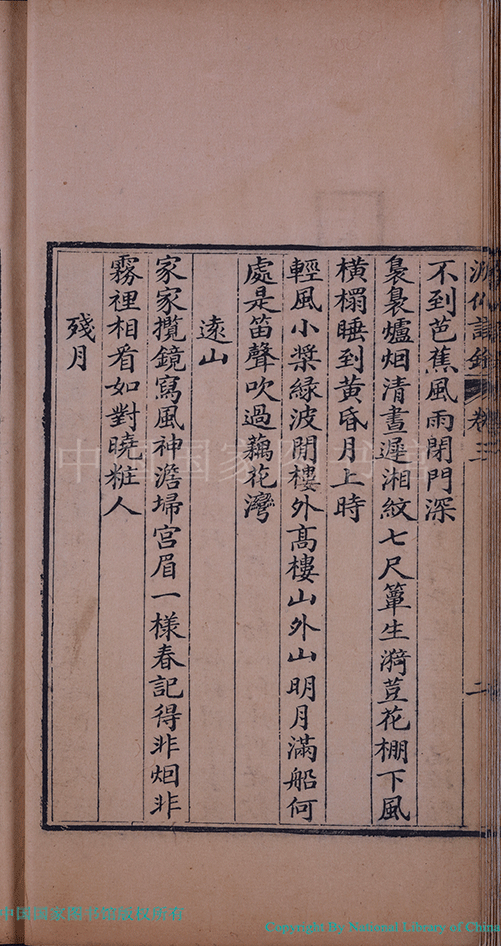 不到芭蕉風雨閉門深
裊裊爐烟清晝遲湘紋七尺簟生漪荳花棚下風
橫榻睡到黃昏月上時
輕風小槳綠波開樓外高樓山外山明月滿船何
處是笛聲吹過藕花灣
遠山
家家攬鏡寫風神澹埽宮眉一樣春記得非烟非
霧裡相看如對曉粧人
殘月
卷三
二
中国国家图书馆
中国国家图书馆版权所有
Copyright By National Library of China